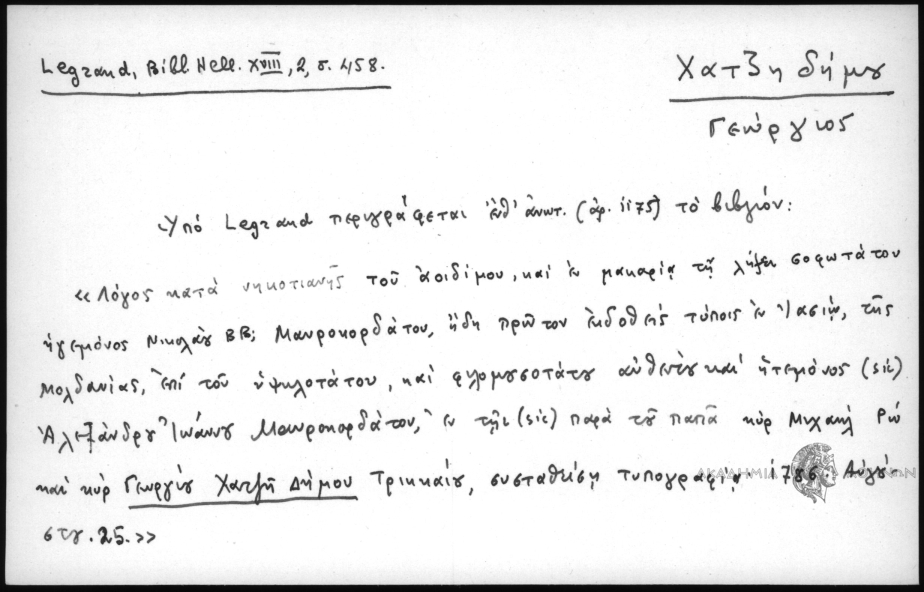 Legrand, Bibl. Hell. XVIII, 2, σ. 458.
Χατζη δήμου
Γεώργιος
Ὑπό Legrand περιγράφεται ἐνθ' ἀνωτ. (ἀρ. 1175) τὸ βιβλίον:
«Λόγος κατὰ νικοτιανῆς τοῦ ἀοιδίμου, καὶ ἐν μακαρίᾳ τῇ λήξει σοφωτάτου
ἡγεμόνος Νικολάου ΒΒ; Μαυροκορδάτου, ἤδη πρῶτον ἐκδοθεὶς τύποις ἐν Ἰασίῳ, τῆς
Μολδαυίας, ἐπὶ τοῦ ὑψηλοτάτου, καὶ φιλομουσοτάτου αὐθέντου καὶ ἡτεμόνος (sic)
Ἀλεξάνδρου Ἰωάννου Μαυροκορδάτου, ἐν τῆι (sic) παρὰ τοῦ παπᾶ κὺρ Μιχαὴλ
καὶ κὺρ Γεωργίου Χατζῆ Δήμου Τρικκαίου, συσταθείσῃ τυπογραφίᾳ 1786 Αὐγού-
στου. 25.»
ΑΚΑΔΗΜΙΑ ΑΘΗΝΩΝ